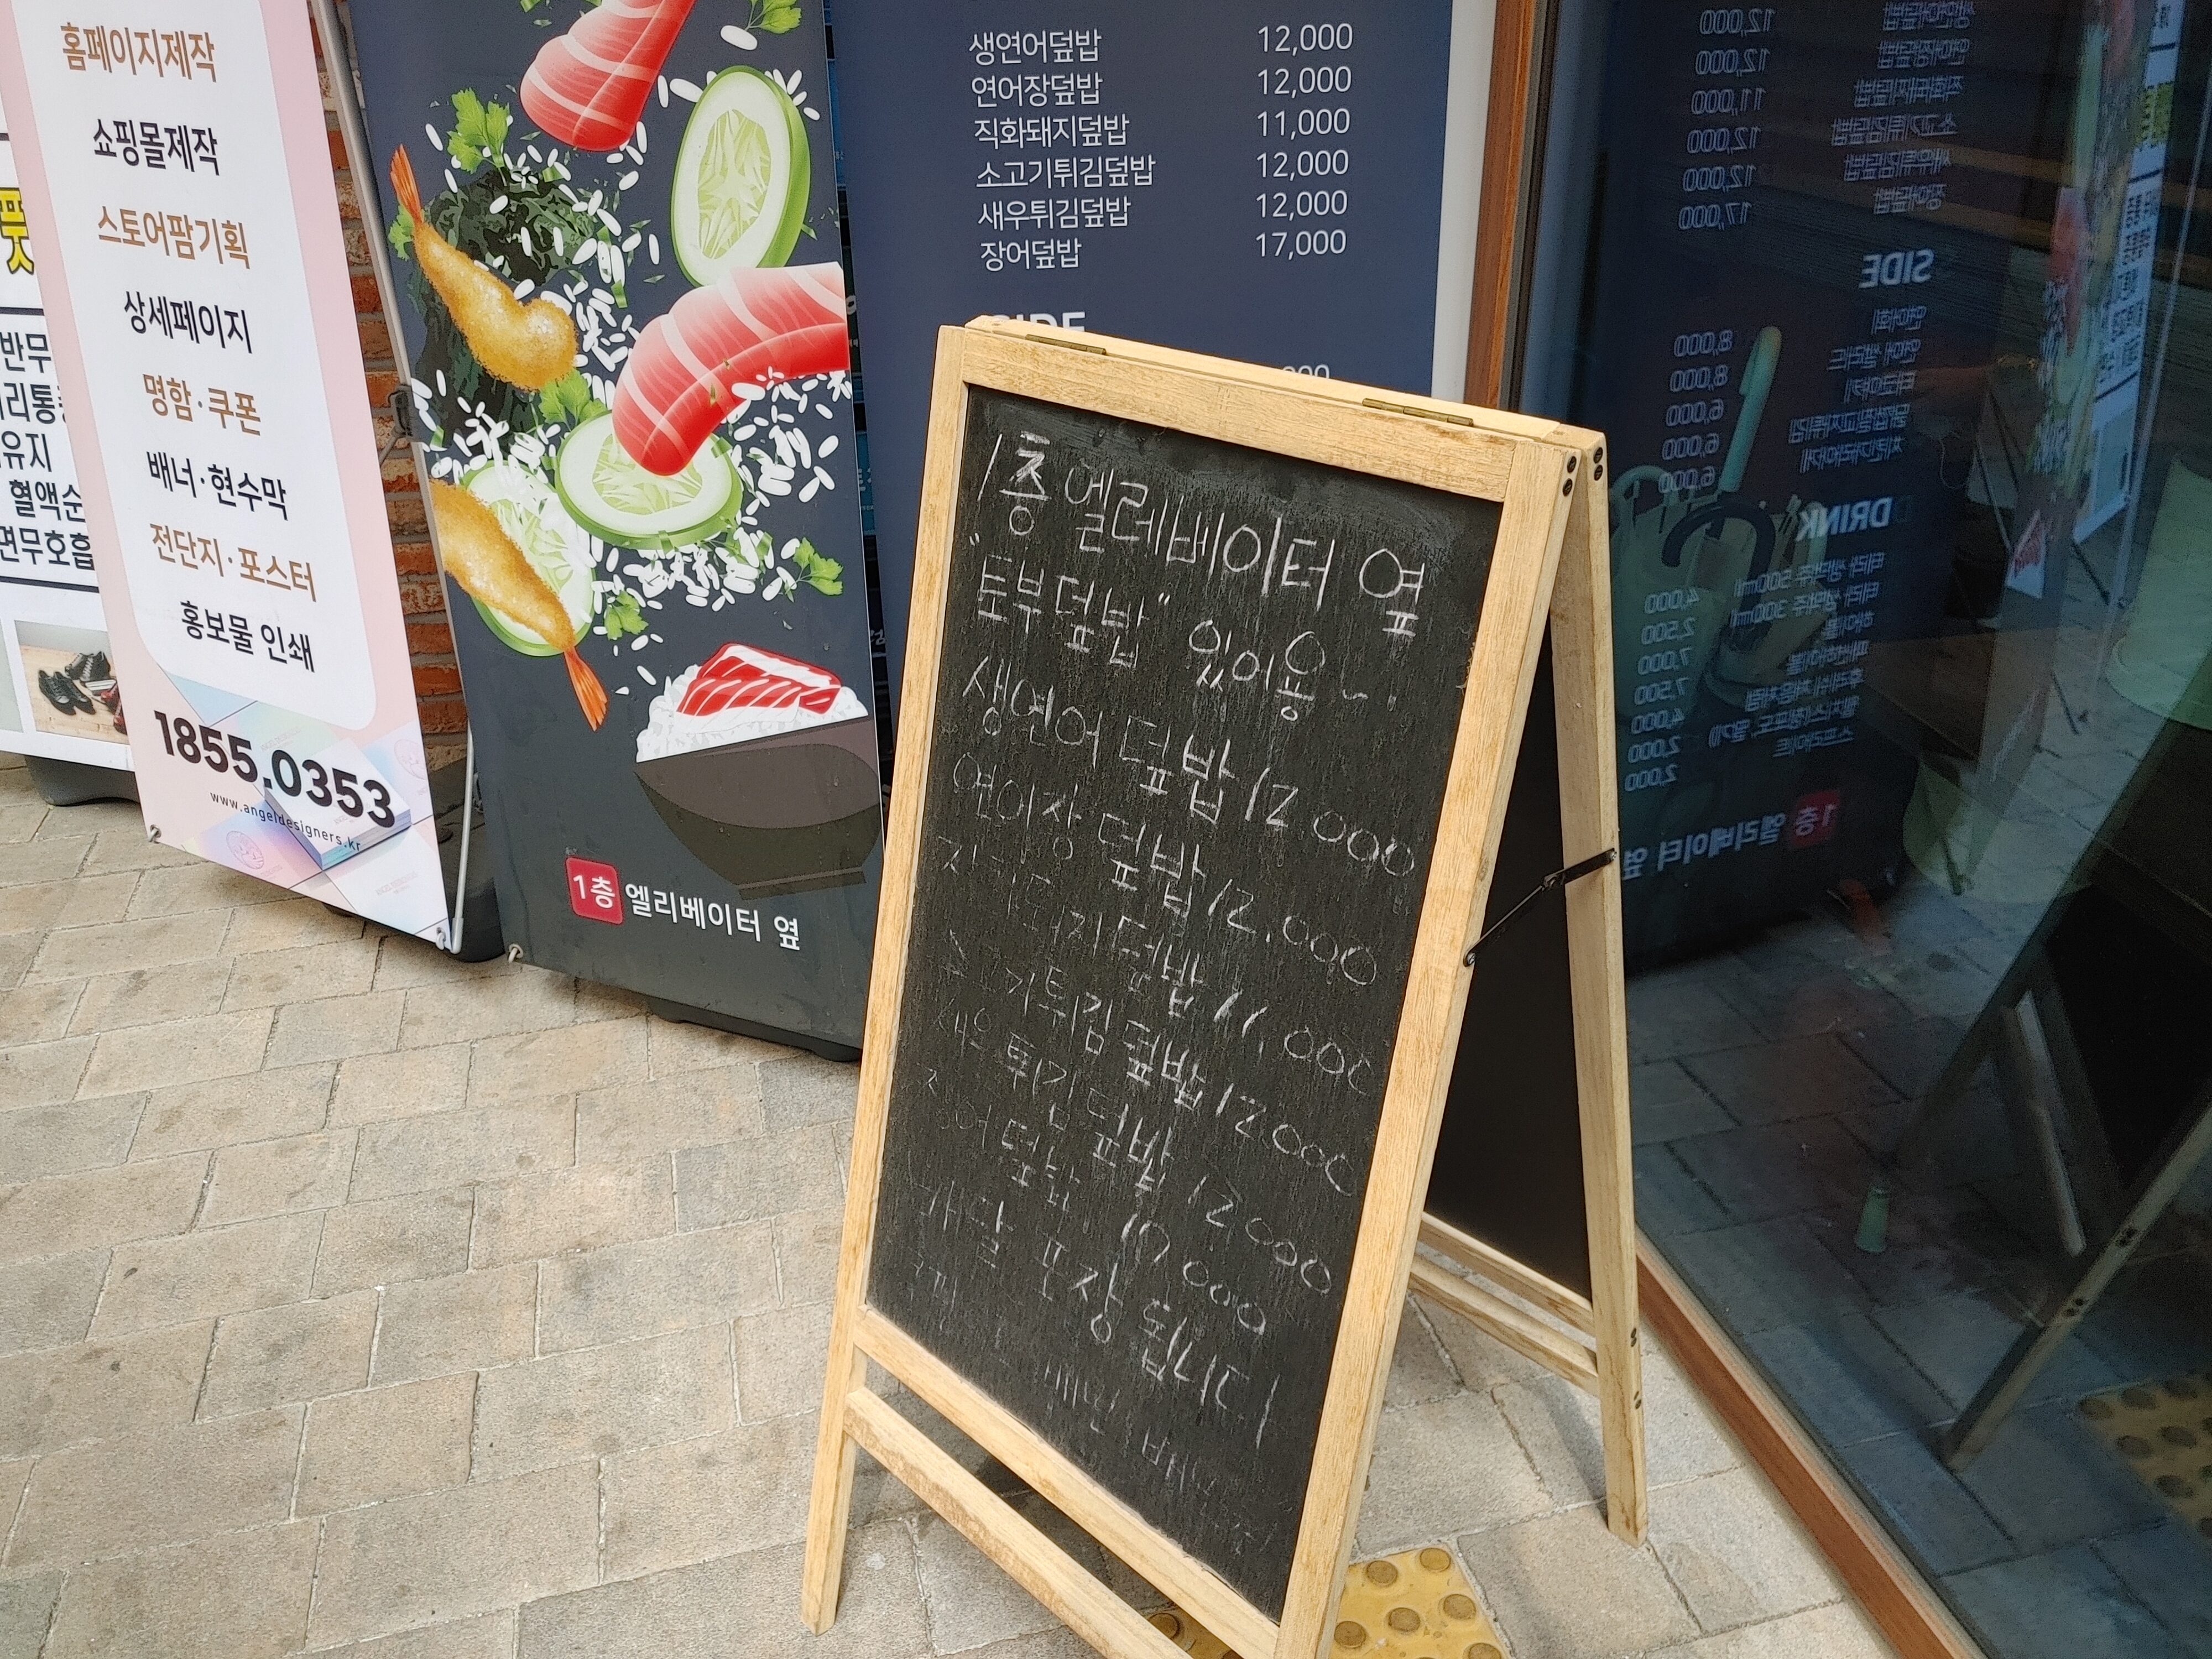 홈페이지제작
쇼핑몰제작
스토어팜기획
상세페이지
명함·쿠폰
배너·현수막
전단지·포스터
홍보물 인쇄
1855.0353
www.angeldesigners.kr
풋
반무
리통
유지
혈액순
면무호흡
1층 엘리베이터 옆
생연어덮밥 12,000
연어장덮밥 12,000
직화돼지덮밥 11,000
소고기튀김덮밥 12,000
새우튀김덮밥 12,000
장어덮밥 17,000
SIDE
1층 엘레베이터 옆
"토부덮밥" 있어용~!
생연어 덮밥 12000
연어장 덮밥 12.000
직화돼지덮밥 11,000
소고기튀김덮밥 12000
새우튀김덮밥 12000
장어덮밥 17000
배달 포장 됩니다
SIDE
8,000
8,000
6,000
6,000
6,000
DRINK
4,000
2,500
7,000
7,500
4,000
2,000
2,000
1층 엘리베이터 옆